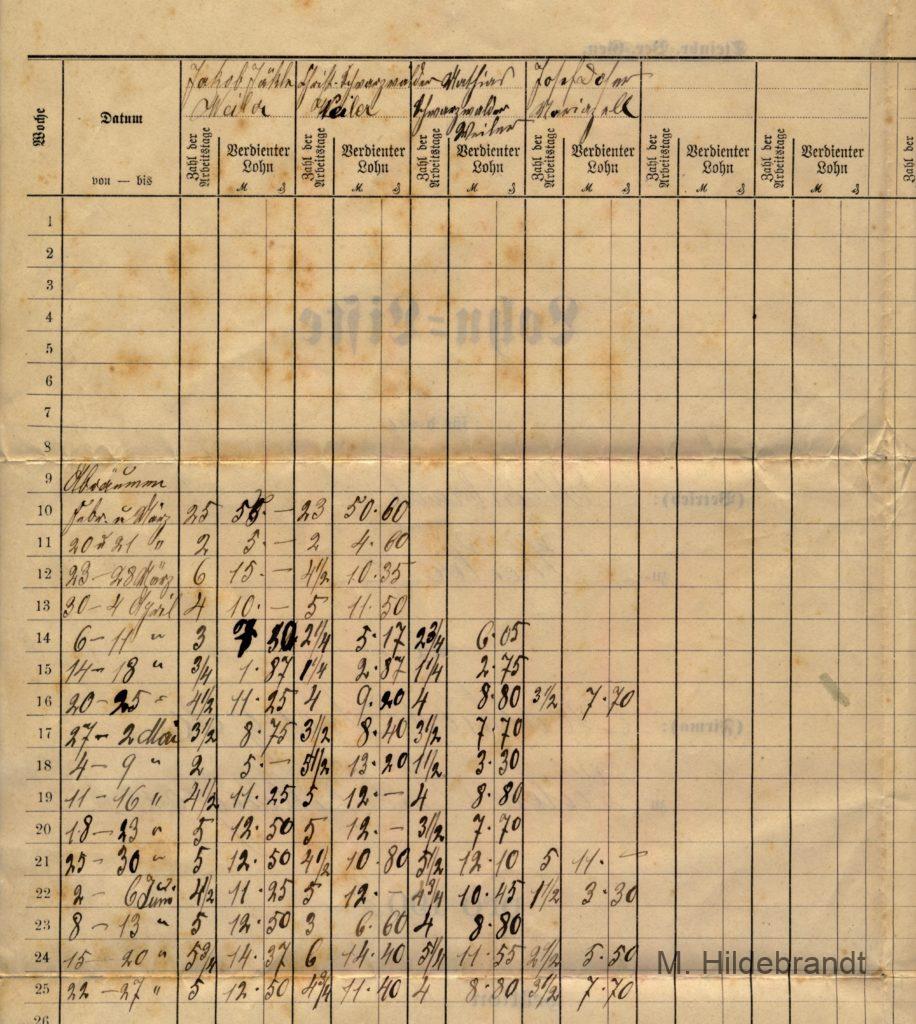 Jakob Jäkle Christ. Schwarzwalder Mathias Josef Doler
Weiler Weiler Schwarzwalder Mariazell
Weiler
Woche Datum Zahl der Arbeitstage Verdienter Lohn Zahl der Arbeitstage Verdienter Lohn Zahl der Arbeitstage Verdienter Lohn Zahl der Arbeitstage Verdienter Lohn Zahl der Arbeitstage Verdienter Lohn Zahl der Arbeitstage Verdienter Lohn Zahl der
von — bis M ₰ M ₰ M ₰ M ₰ M ₰ M ₰
1
2
3
4
Lohn=Liste
5
6
7
8
9 Abräumen
10 Febr. u März 25 – 23 50.60
11 20 u 21 " 2 5. – 2 4.60
12 23 – 28 März 6 15. – 4 1/2 10.35
13 30 – 4 April 4 10. – 5 11.50
14 6 – 11 " 3 7 50 2 1/4 5.17 2 3/4 6.05
15 14 – 18 " 3/4 1.87 1 1/4 2.87 1 1/4 2.75
16 20 – 25 " 4 1/2 11.25 4 9.20 4 8.80 3 1/2 7.70
17 27 – 2 Mai 3 1/2 8.75 3 1/2 8.40 3 1/2 7.70
18 4 – 9 " 2 5. – 5 1/2 13.20 1 1/2 3.30
19 11 – 16 " 4 1/2 11.25 5 12. – 4 8.80
20 18 – 23 " 5 12.50 5 12. – 3 1/2 7.70
21 25 – 30 " 5 12.50 4 1/2 10.80 5 1/2 12.10 5 11. –
22 2 – 6 Juni 4 1/2 11.25 5 12. – 4 3/4 10.45 1 1/2 3.30
23 8 – 13 " 5 12.50 3 6.60 4 8.80
24 15 – 20 " 5 3/4 14.37 6 14.40 5 1/4 11.55 2 1/2 5.50
M. Hildebrandt
25 22 – 27 " 5 12.50 4 3/4 11.40 4 8.80 3 1/2 7.70
26